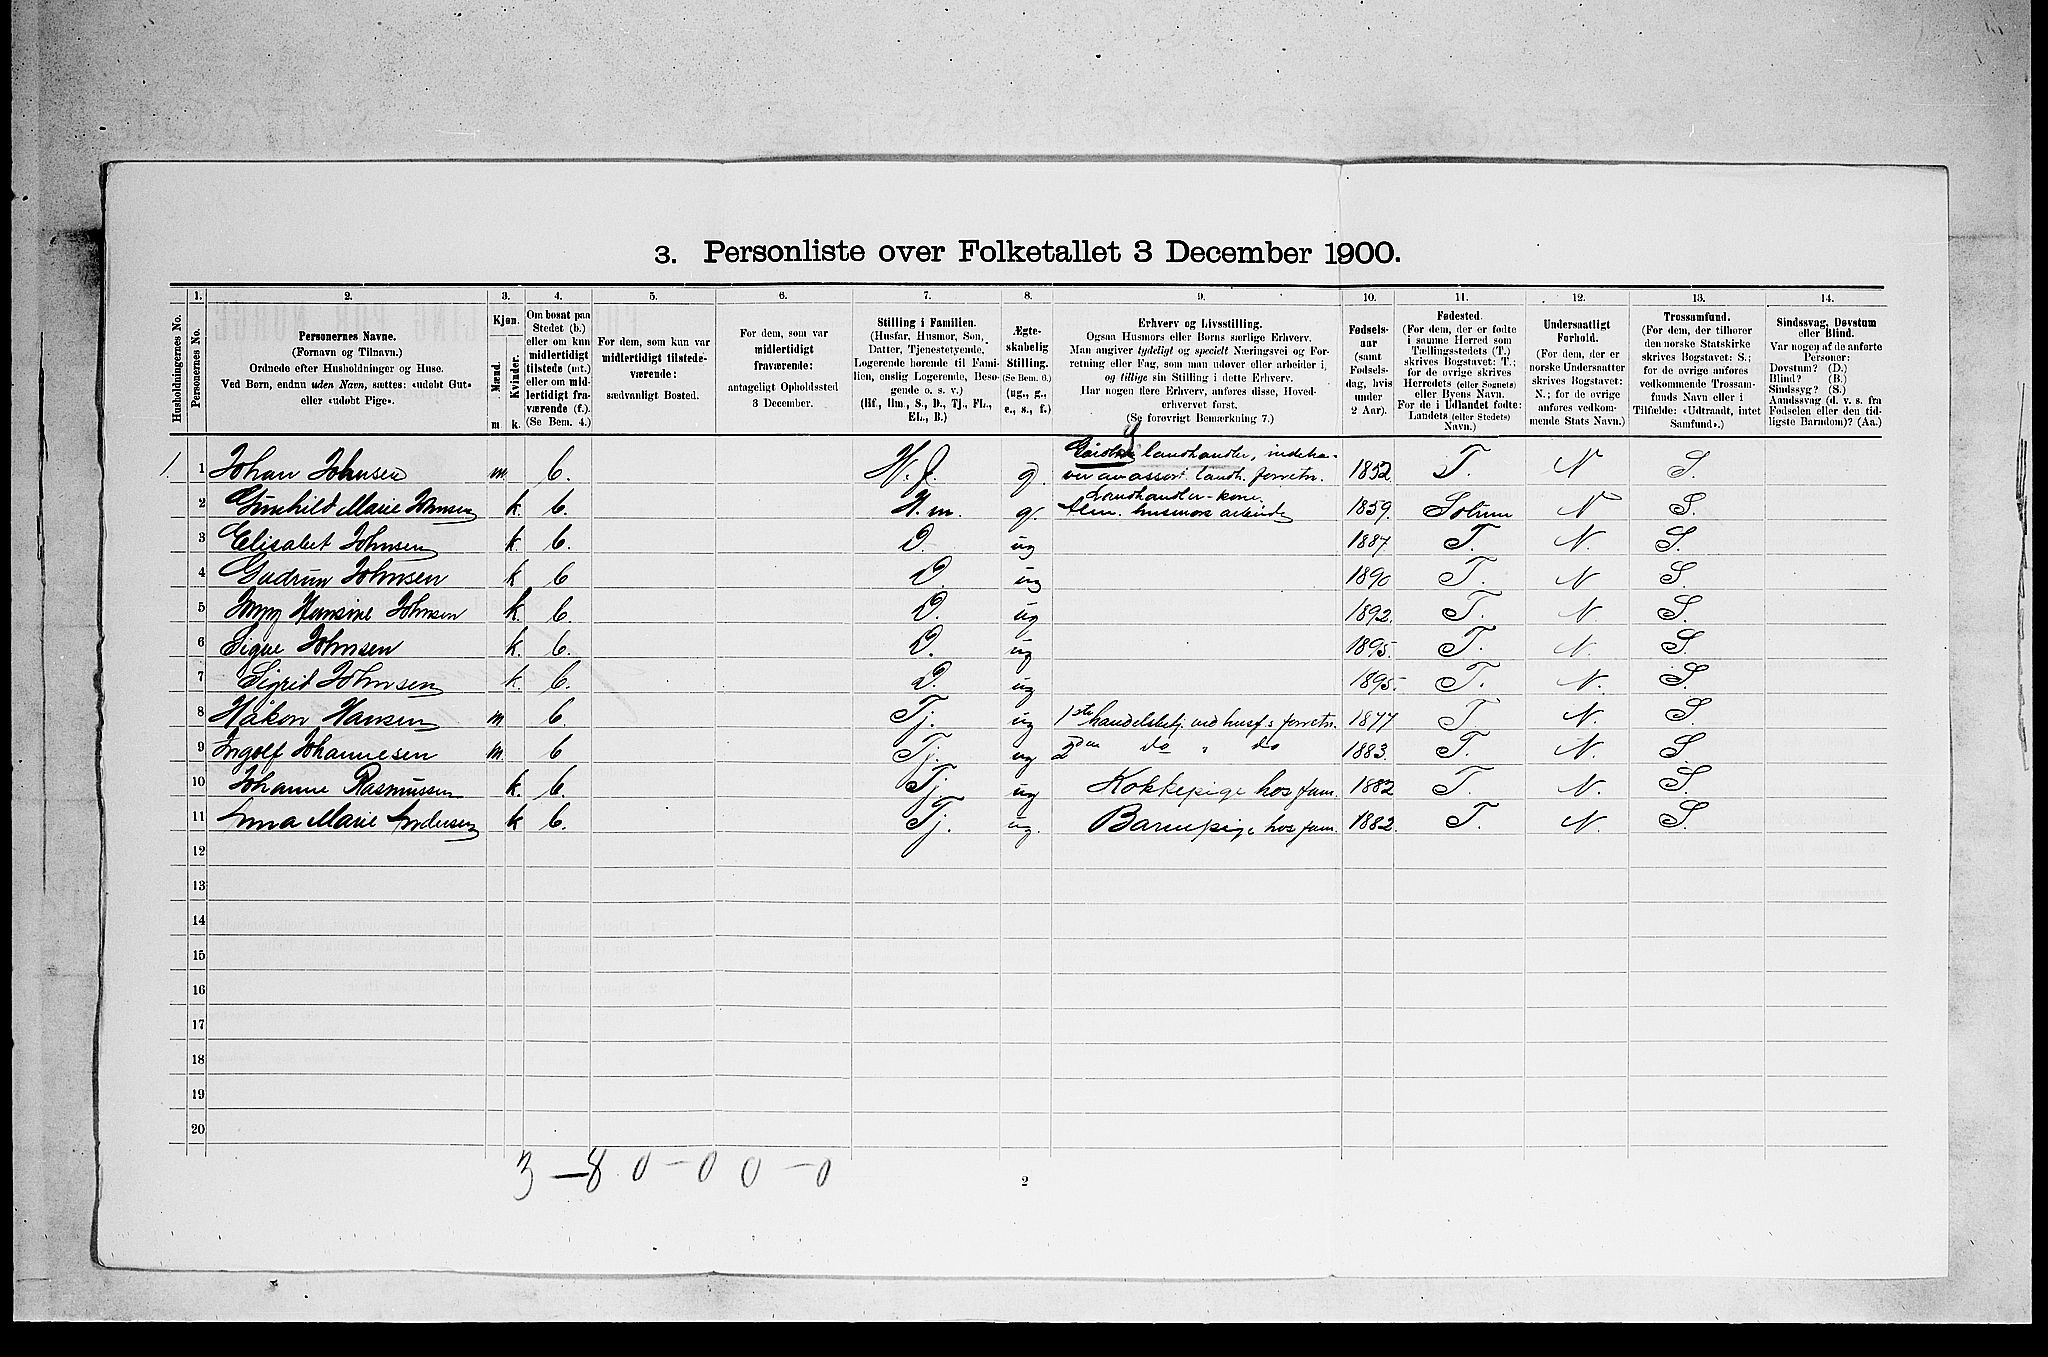 3. Personliste over Folketallet 3 December 1900.
Husholdningernes No.
1. Personernes No.
2.
Personernes Navne.
(Fornavn og Tilnavn.)
Ordnede efter Husholdninger og Huse.
Ved Børn, endnu uden Navn, sættes: «udøbt Gut»
eller «udøbt Pige».
3.
Kjøn.
Mænd.
Kvinder.
m. k.
4.
Om bosat paa
Stedet (b.)
eller om kun
midlertidigt
tilstede (mt.)
eller om mid-
lertidigt fra-
værende (f.).
(Se Bem. 4.)
5.
For dem, som kun var
midlertidigt tilstede-
værende:
sædvanligt Bosted.
6.
For dem, som var
midlertidigt
fraværende:
antageligt Opholdssted
3 December.
7.
Stilling i Familien.
(Husfar, Husmor, Søn,
Datter, Tjenestetyende,
Logerende hørende til Fami-
lien, enslig Logerende, Besø-
gende o. s. v.)
(Hf., Hm., S., D., Tj., FL.,
EL., B.)
8.
Ægte-
skabelig
Stilling.
(Se Bem. 6.)
(ug., g.,
e., s., f.)
9.
Erhverv og Livsstilling.
Ogsaa Husmors eller Børns særlige Erhverv.
Man angiver tydeligt og specielt Næringsvei og For-
retning eller Fag, som man udøver eller arbeider i,
og tillige sin Stilling i dette Erhverv.
Har nogen flere Erhverv, anføres disse, Hoved-
erhvervet først.
(Se forøvrigt Bemærkning 7.)
10.
Fødsels-
aar
(samt
Fødsels-
dag, hvis
under
2 Aar).
11.
Fødested.
(For dem, der er fødte
i samme Herred som
Tællingsstedets (T.)
skrives Bogstavet: T.;
for de øvrige skrives
Herredets (eller Sognets)
eller Byens Navn.
For de i Udlandet fødte:
Landets (eller Stedets)
Navn.)
12.
Undersaatligt
Forhold.
(For dem, der er
norske Undersaatter
skrives Bogstavet:
N.; for de øvrige
anføres vedkom-
mende Stats Navn.)
13.
Trossamfund.
(For dem, der tilhører
den norske Statskirke
skrives Bogstavet: S.;
for de øvrige anføres
vedkommende Trossam-
funds Navn eller i
Tilfælde: «Udtraadt, intet
Samfund».)
14.
Sindssvag, Døvstum
eller Blind.
Var nogen af de anførte
Personer:
Døvstum? (D.)
Blind? (B.)
Sindssyg? (S.)
Aandssvag (d. v. s. fra
Fødselen eller den tid-
ligste Barndom)? (Aa.)
1. 1 Johan Johnsen m b. H.f. g. landhandler, indeha-
ver av assort. landh. forretn. 1852 T. N S.
2 Gunhild Marie Johnsen k. b. H.m. g. Landhandler-kone.
Alm. husmors arbeide 1859. Solum N S.
3 Elisabet Johnsen k. b. D. ug 1887. T. N. S.
4 Gudrun Johnsen k b D. ug 1890 T. N. S.
5 Hansine Johnsen k. b D. ug 1892. T. N. S.
6 Signe Johnsen k. b. D. ug 1895. T. N. S.
7 Sigrid Johnsen k. b. D. ug 1895. T. N. S.
8 Håkon Hansen m b. Tj. ug 1ste handelsbetj. ved husf.s forretn. 1877 T. N. S.
9 Ingolf Johannesen m. b Tj. ug 2den do " do 1883. T. N. S.
10 Johanne Rasmussen k. b. Tj. ug Kokkepige hos fam. 1882 T. N. S.
11 Anna Marie Andersen k b. Tj. ug. Barnepige hos fam. 1882. T. N. S.
12
13
14
15
16
17
18
19
20
3 – 8 0 – 0 0 – 0
2